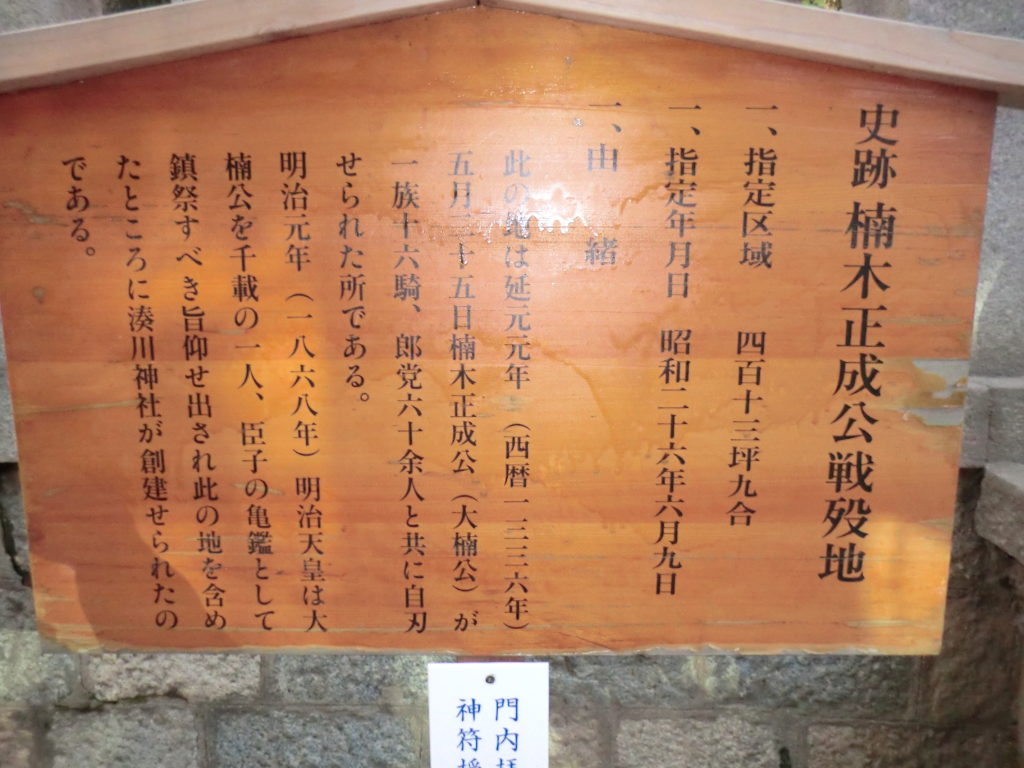 史跡 楠木正成公戦歿地
一、指定区域 四百十三坪九合
一、指定年月日 昭和二十六年六月九日
一、由緒
此の地は延元元年（西暦一三三六年）
五月二十五日楠木正成公（大楠公）が
一族十六騎、郎党六十余人と共に自刃
せられた所である。
明治元年（一八六八年）明治天皇は大
楠公を千載の一人、臣子の亀鑑として
鎮祭すべき旨仰せ出され此の地を含め
たところに湊川神社が創建せられたの
である。
門内
神符